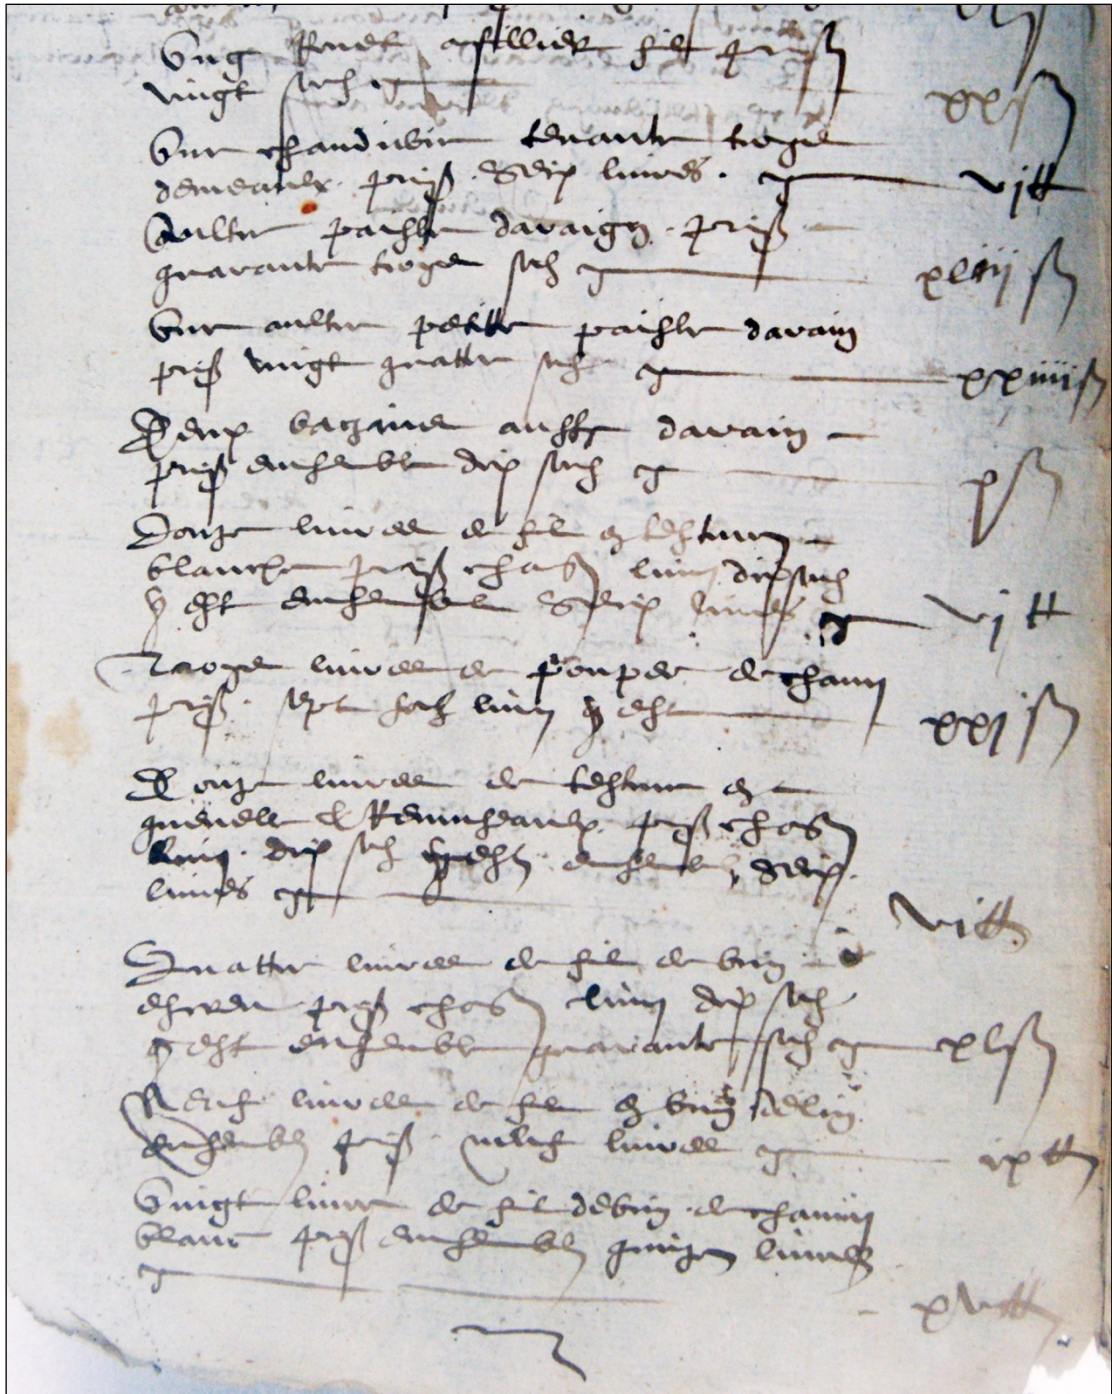 Ung Rouet a filler fil prisé
vingt solz xx s
Une chaudiere tenante troys
demeaulx prisé six livres vj tt
Aultre paisle darain prisé
quarante troys solz xliij s
Une aultre petitte paisle darain
prisé vingt quattre solz xxiiij s
Deux bacgins aussy darain
prisé ensemble dix solz x s
Douze livres de fil en
blanche prisé chascune livre dix solz
y est ensemble six livres vj tt
Troys livres de poupee de chanv
prisé sept solz livre y est xxj s
Douze livres de
prisé chascune
livre dix solz y est ensemble six
livres vj tt
Quattre livres de fil de brin
prisé chascune livre dix solz
y est ensemble quarante solz xl s
Neuf livres de fil en brin de lin
ensemble prisé neuf livres ix tt
Vingt livre de fil de brin de chanv
blanc prisé ensemble quinze livres
xv tt